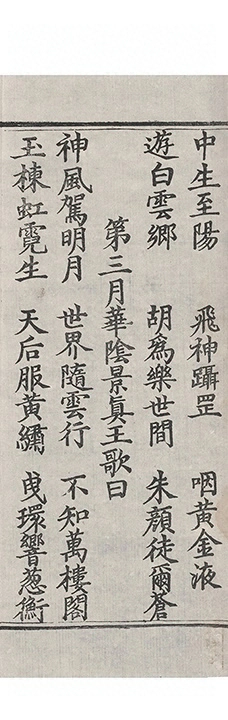 中生至陽　飛神躡罡　咽黃金液
遊白雲鄉　胡爲樂世間　朱顏徒爾蒼
第三月華陰景眞王歌曰
神風駕明月　世界隨雲行　不知萬樓閣
玉棟虹霓生　天后服黃繡　曳環響葱衡